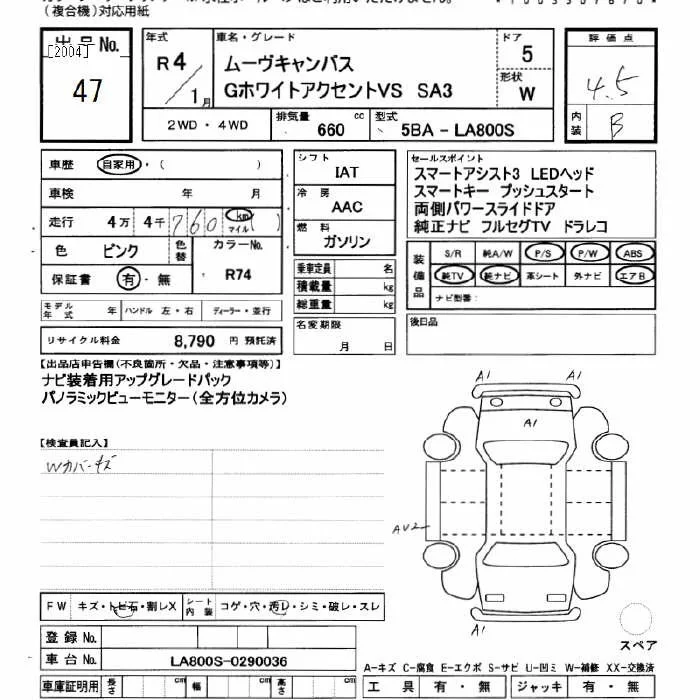 (複合機)対応用紙
出品No.
[2004]
47
年式
R4
1月
車名・グレード
ムーヴキャンバス
GホワイトアクセントVS SA3
ドア
5
形状
W
2WD・4WD
排気量
660 cc
型式
5BA - LA800S
評価点
4.5
内装
B
車歴 自家用・( )
車検 年 月
走行 4万 4千 760 km マイル ( )
色 ピンク 色替 カラーNo.
R74
保証書 有・無
モデル年式 年 ハンドル 左・右 ディーラー・並行
リサイクル料金 8,790 円 預託済
シフト
IAT
冷房
AAC
燃料
ガソリン
乗車定員 名
積載量 kg
総重量 kg
名変期限
月 日
セールスポイント
スマートアシスト3 LEDヘッド
スマートキー プッシュスタート
両側パワースライドドア
純正ナビ フルセグTV ドラレコ
装備品
S/R 純A/W P/S P/W ABS
純TV 純ナビ 革シート 外ナビ エアB
ナビ型番:
後日品
【出品店申告欄(不良箇所・欠品・注意事項等)】
ナビ装着用アップグレードパック
パノラミックビューモニター(全方位カメラ)
【検査員記入】
Wカバーキズ
A1 A1
A1
AU2
A1
スペア
FW キズ・トビ石・割レX
シート内装 コゲ・穴・汚レ・シミ・破レ・スレ
登録No.
車台No. LA800S-0290036
車庫証明用 長さ cm 幅 cm 高さ cm
A-キズ C-腐食 E-エクボ S-サビ U-凹ミ W-補修 XX-交換済
工具 有・無 ジャッキ 有・無